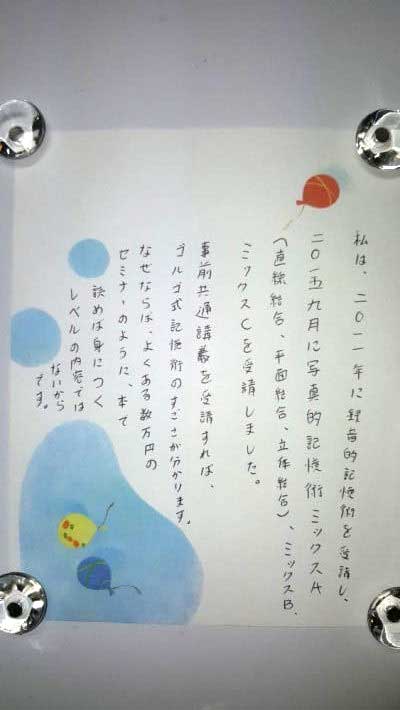 私は、二〇一一年に録音的記憶術を受講し、
二〇一五九月に写真的記憶術ミックスA
（直線結合、平面結合、立体結合）、ミックスB、
ミックスCを受講しました。
事前共通講義を受講すれば、
ゴルゴ式記憶術のすごさが分かります。
なぜならば、よくある数万円の
セミナーのように、本で
読めば身につく
レベルの内容では
ないから
です。